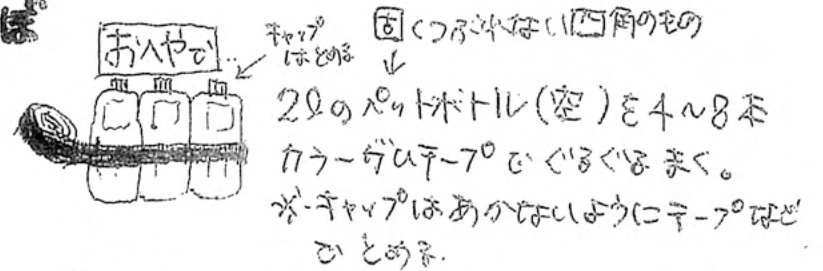 ぽ
おへやで
キャップはとめる
固くつぶれない四角のもの
↓
2ℓのペットボトル(空)を4〜8本
カラーガムテープでぐるぐるまく。
※キャップはあかないようにテープなど
でとめる.